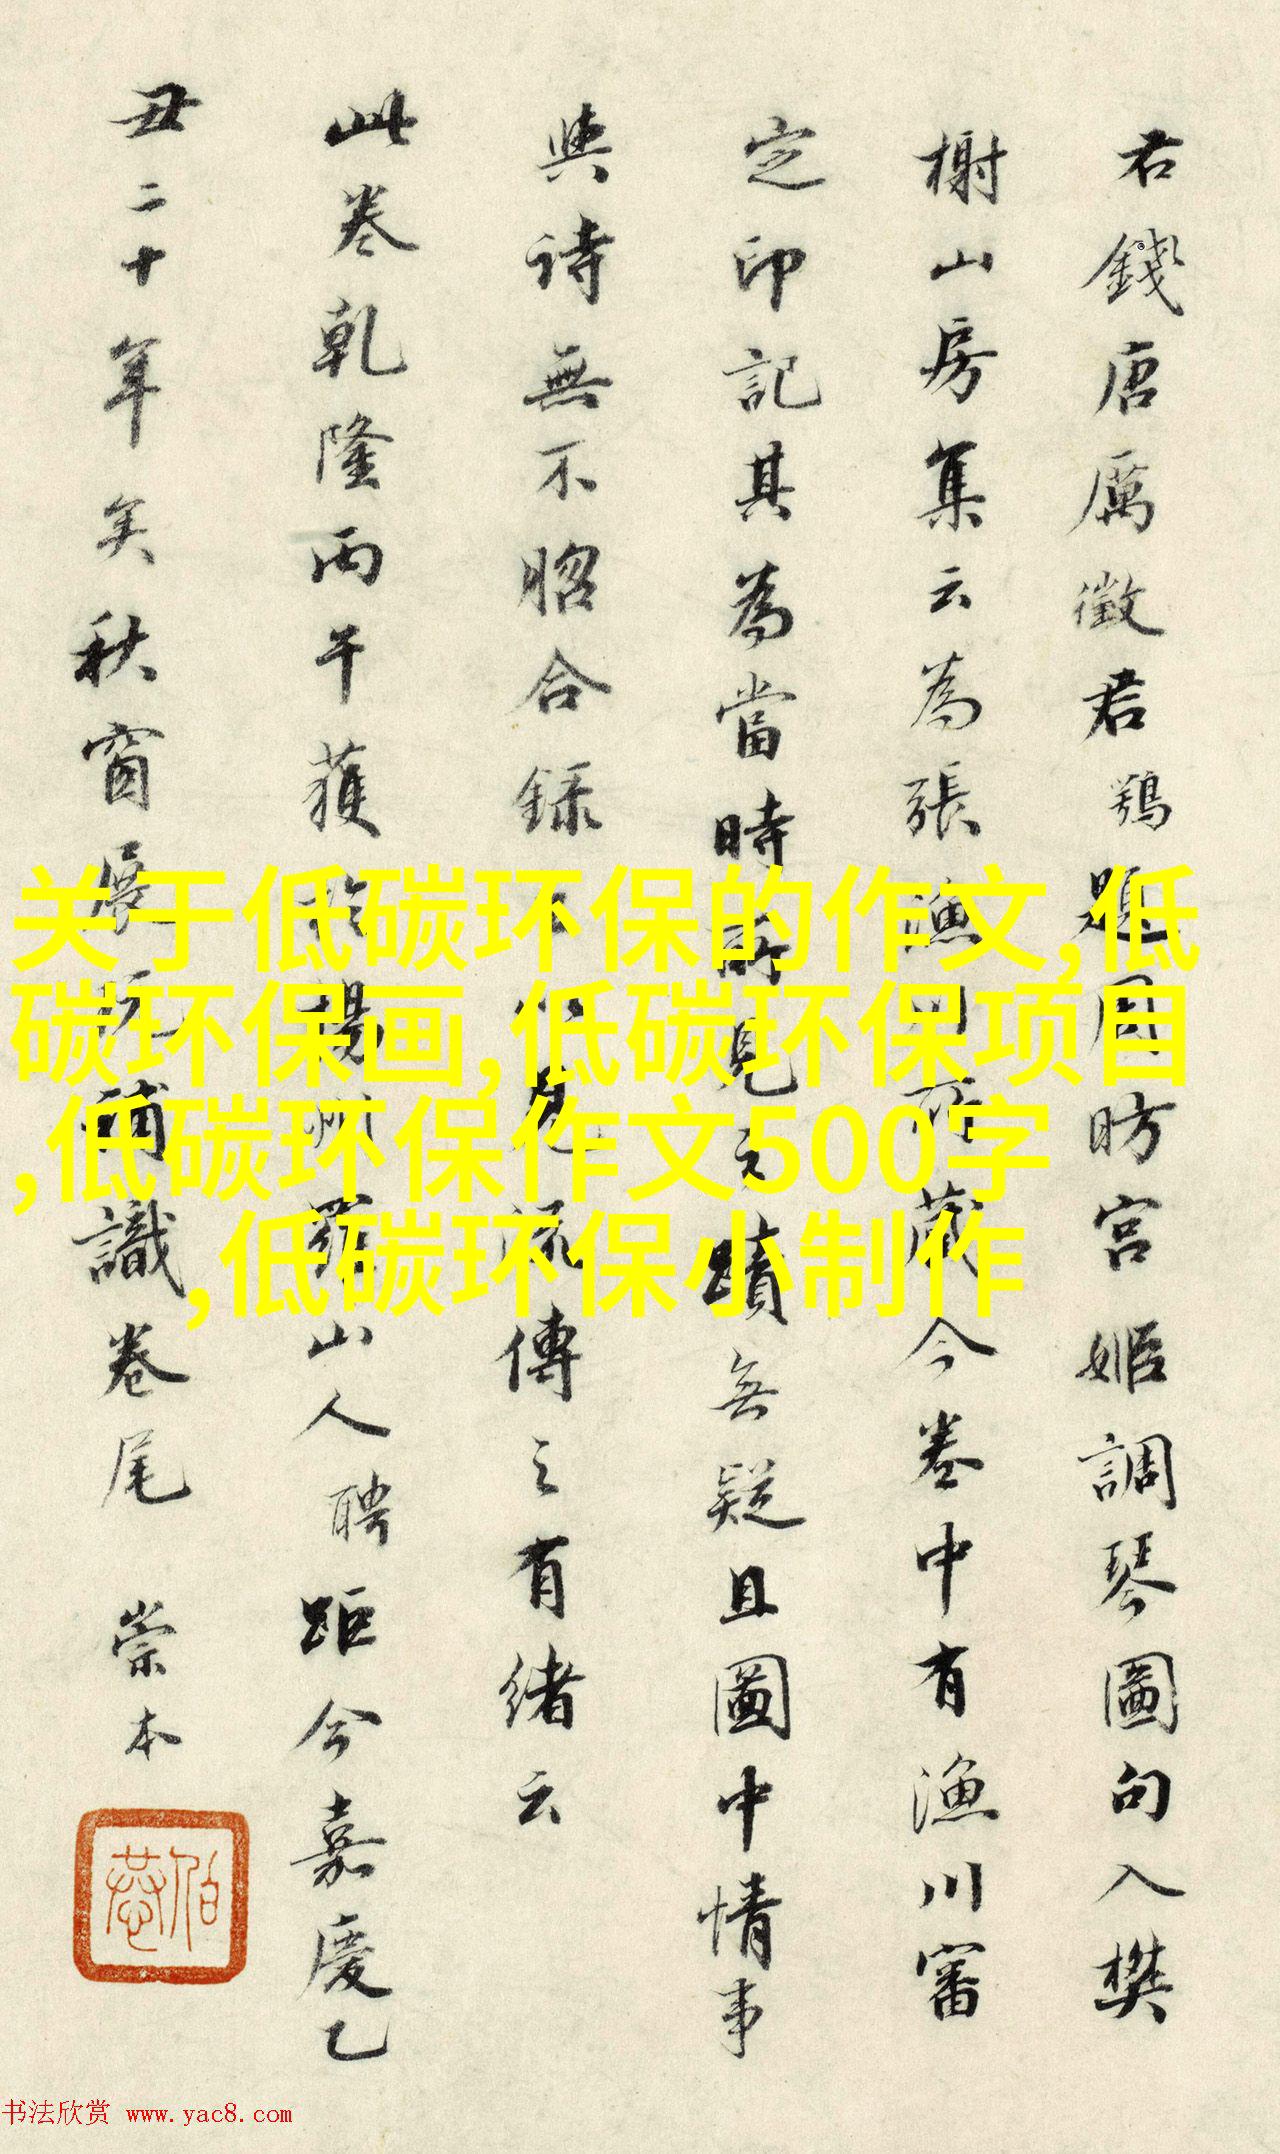 君錢唐厲徵君鶚題周昉宫姬調琴圖句入樊
榭山房集云為張漁川所藏今卷中有漁川審
定印記其為當時所見之蹟無疑且圖中情事
與詩無不昭合録
流傳之有緒云
此卷乾隆丙午獲於揚州羅山人聘距今嘉慶乙
丑二十年矣秋窗展玩補識卷尾 崇本
关于低碳环保的作文,低
碳环保画,低碳环保项目
,低碳环保作文500字
,低碳环保小制作
书法欣赏 www.yac8.com